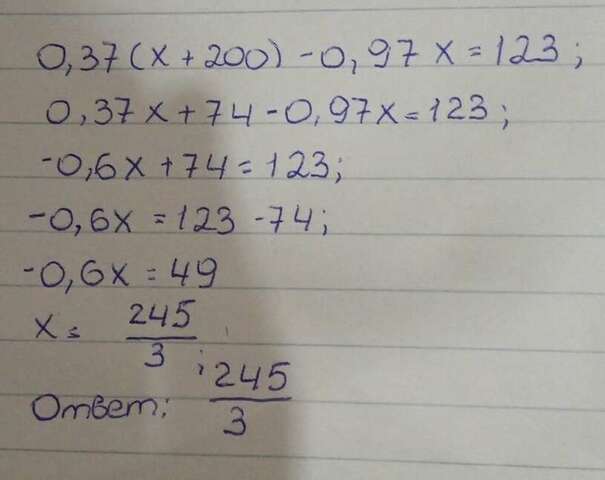 0,37(x+200)-0,97x=123;
0,37x+74-0,97x=123;
-0,6x+74=123;
-0,6x=123-74;
-0,6x=49
x= 245/3;
Ответ: 245/3